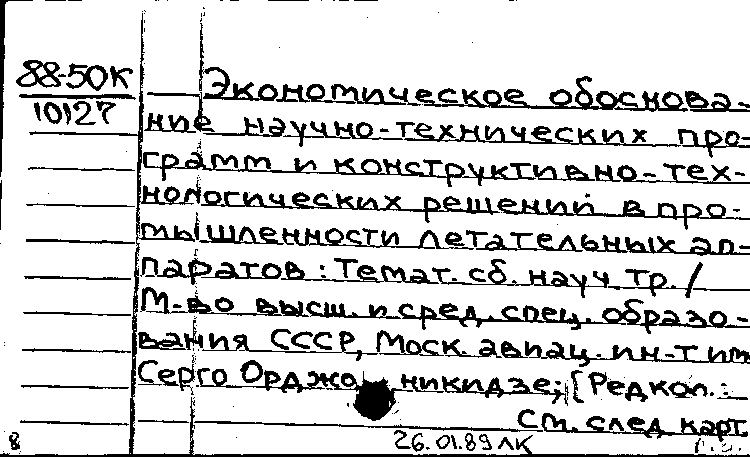 88-50К
10127
Экономическое обоснова-
ние научно-технических про-
грамм и конструктивно-тех-
нологических решений в про-
мышленности летательных ап-
паратов: Темат. сб. науч. тр. /
М-во высш. и сред. спец. образо-
вания СССР, Моск. авиац. ин-т им.
Серго Орджоникидзе; [Редкол.:
См. след. карт.
8
26.01.89 ЛК